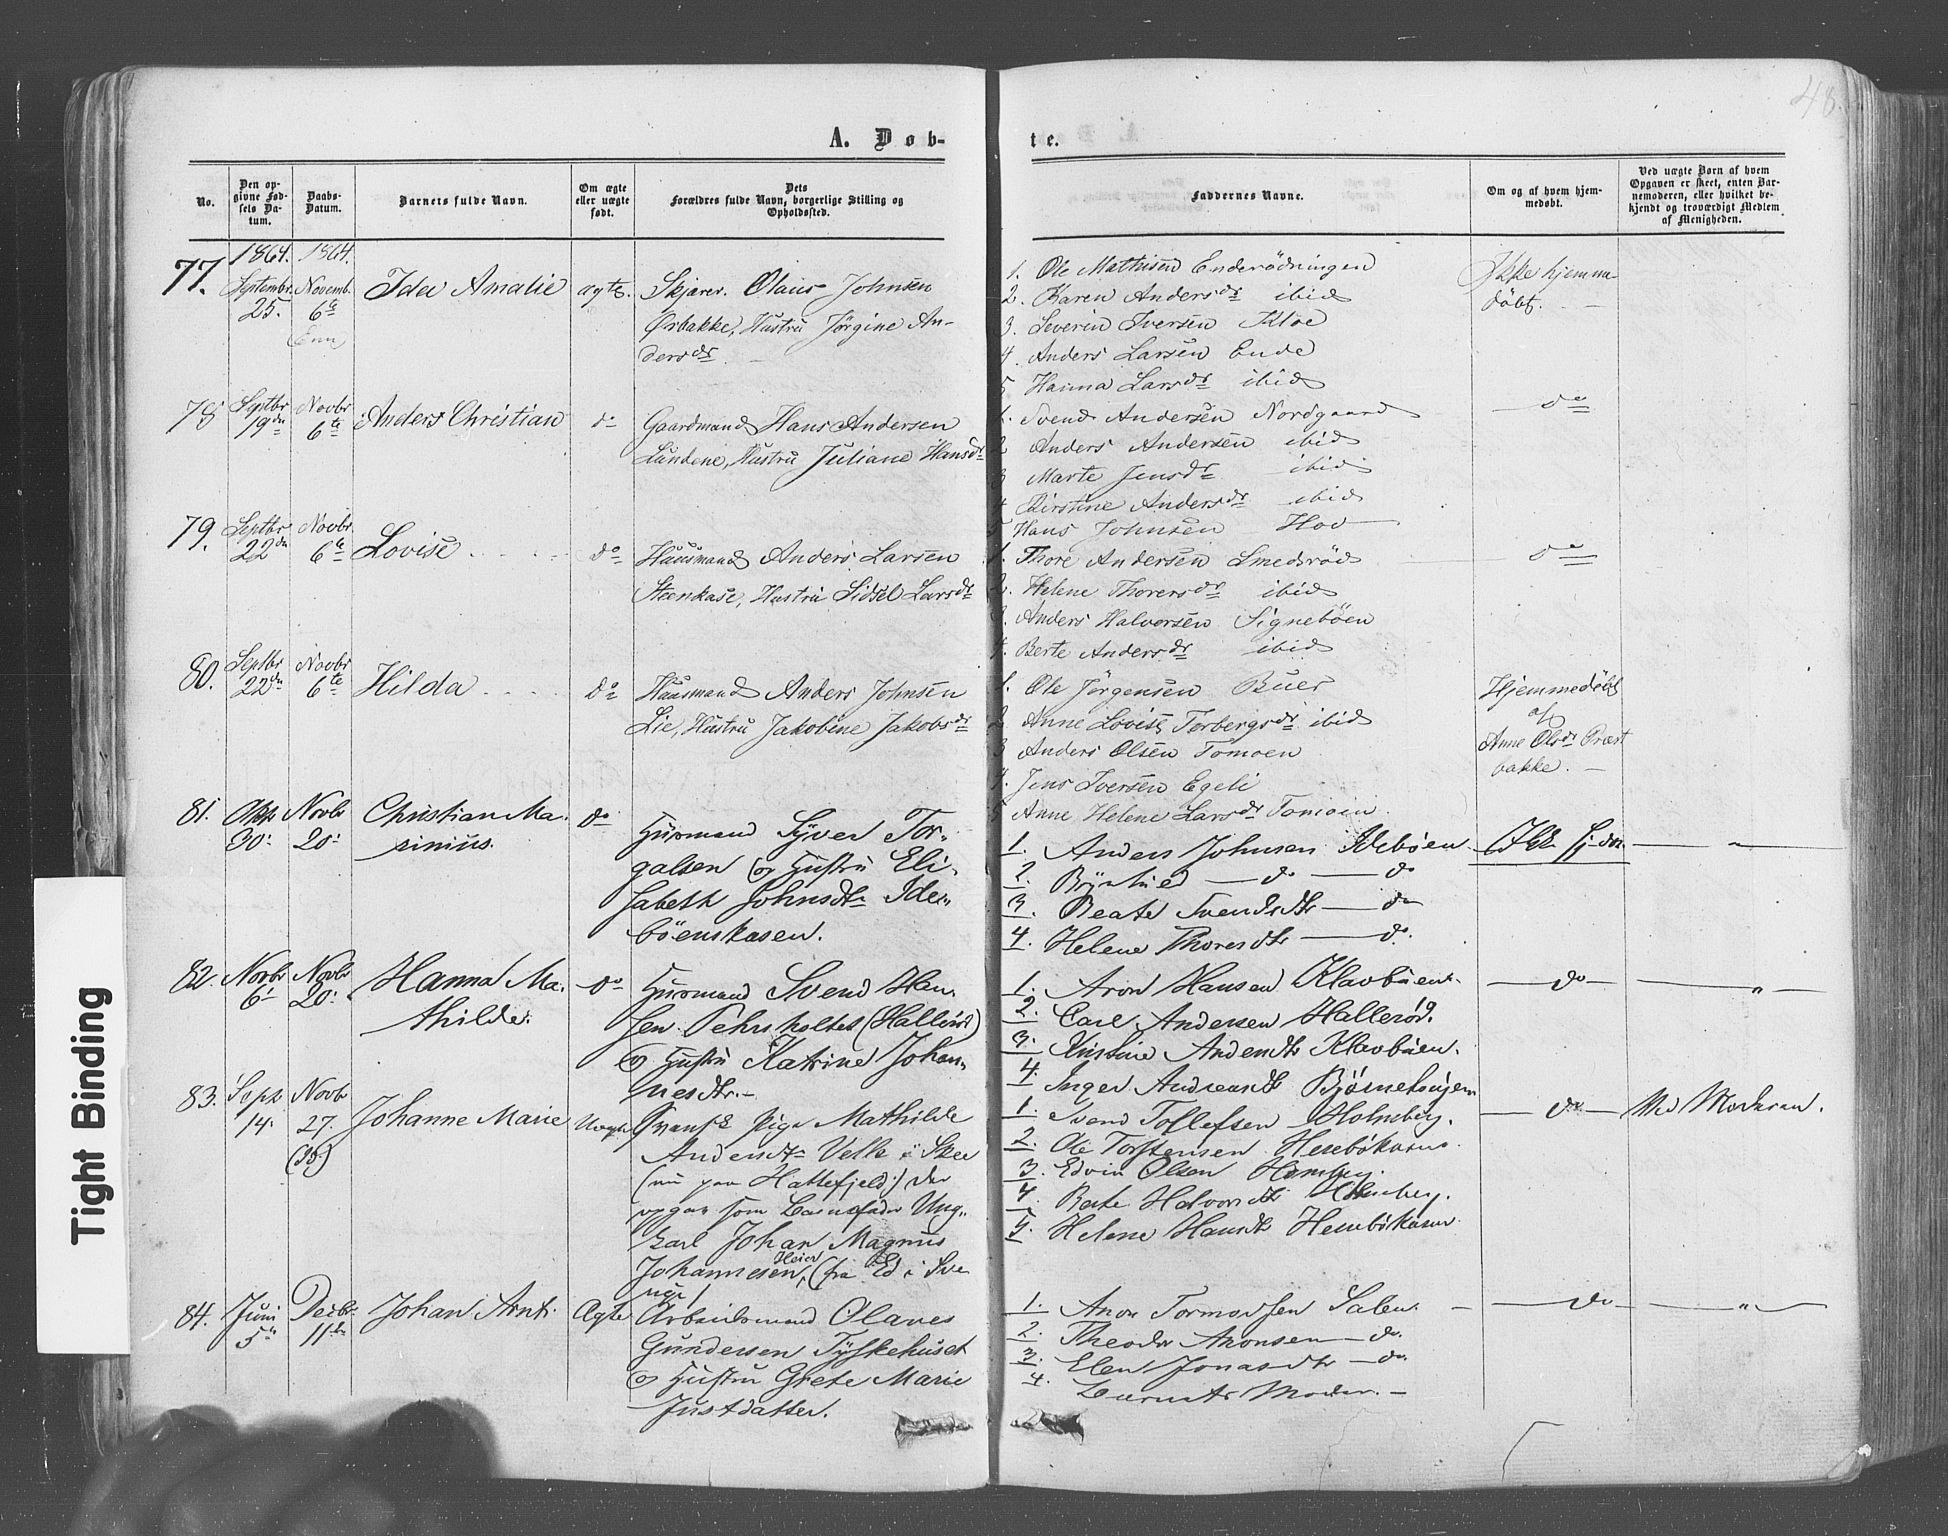 48.
A. Døb-
te.
No.
Den op-
givne Fød-
sels Da-
tum.
Daabs-
Datum.
Barnets fulde Navn.
Om ægte
eller uægte
født.
Dets
Forældres fulde Navn, borgerlige Stilling og
Opholdssted.
Faddernes Navne.
Om og af hvem hjem-
medøbt.
Ved uægte Børn af hvem
Opgaven er skeet, enten Bar-
nemoderen, eller hvilket be-
kjendt og troværdigt Medlem
af Menigheden.
1864. 1864.
77.
Septembr
25.
Novemb.
6te
Ida Amalie
ægte.
Skjærer. Olaus Johnsen
Ørbakke, Hustru Jørgine An-
dersdr
1. Ole Mathisen Enderødningen
2. Karen Andersdr ibid
3. Severin Iversen Kloe
4. Anders Larsen Ende
5 Hanna Larsdr ibid
Ikke hjemme-
døbt.
78
Septbr
19de
Novbr
6te
Anders Christian
do
Gaardmand Hans Andersen
Lundene, Hustru Juliane Hansdr
1. Svend Andersen Nordgaard
2 Anders Andersen ibid
3 Marte Jensdr ibid
4 Kirstine Andersdr ibid
5 Hans Johnsen Hov
do
79.
Septbr
22de
Novbr
6te
Lovise
do
Huusmand Anders Larsen
Steenkase, Hustru Sidsel Larsdr
1. Thore Andersen Smedsrød
2. Helene Thoresdr ibid
3. Anders Halvorsen Signebøen
4. Berte Andersdr ibid
do
80.
Septbr
22de
Novbr
6te
Hilda
do
Huusmand Anders Johnsen
Lie, Hustru Jakobine Jakobsdr
1. Ole Jørgensen Buer
2 Anne Lovise Torbergsdr ibid
3 Anders Olsen Tomoen
4. Jens Iversen Egeli
5 Anne Helene Larsdr Tomoen
Hjemmedøbt
af
Anne Olsdr Præst
bakke.
81.
30.
Novbr
20.
Christian Ma-
rinius.
do
Husmand Syver Tor-
galsen og Hustru Eli-
sabeth Johnsdtr Ide-
böenskasen.
1. Anders Johnsen Idebøen
2. do do
3. Beate Svendsdtr do
4. Helene Thoresdtr do.
Ikke hj. døbt
"
82.
Novbr
6.
Novbr
20.
Hanna Ma-
thilde.
do
Husmand Svend Han-
sen (Hallerød)
og Hustru Katrine Johan-
nesdtr.
1. Aron Hansen Klavbøen
2. Carl Andersen Hallerød.
3. Kristine Andersdtr Klavbøen.
4. Inger Andreasdtr
do
"
83.
Sept.
14.
Novbr
27.
Johanne Marie
Uægte
Svensk Pige Mathilde
Andersdtr Velle i Skee
(nu paa Hattefjeld) der
opgav som Barnefader Ung-
karl Johan Magnus
Johannesen, Heier (fra Ed i Sve
rige)
1. Svend Tollefsen Holmberg.
2. Ole Torstensen Hesebøkasen
3. Edvin Olsen Holmberg.
4. Berte Halvorsdtr Holmberg.
5. Helene Hansdtr Hesebøkasen
do
Ved Moderen.
84.
Juni
5te
Decbr.
11te
Johan Arnt.
Ægte
Arbeidsmand Olaves
Gundersen Tyskehuset
og Hustru Grete Marie
Justdatter.
1. Anon Tormodsen Salen
2. Theodor Anonsen do.
3. Elen Jonasdtr do.
4. Barnets Moder.
do
"
Tight Binding